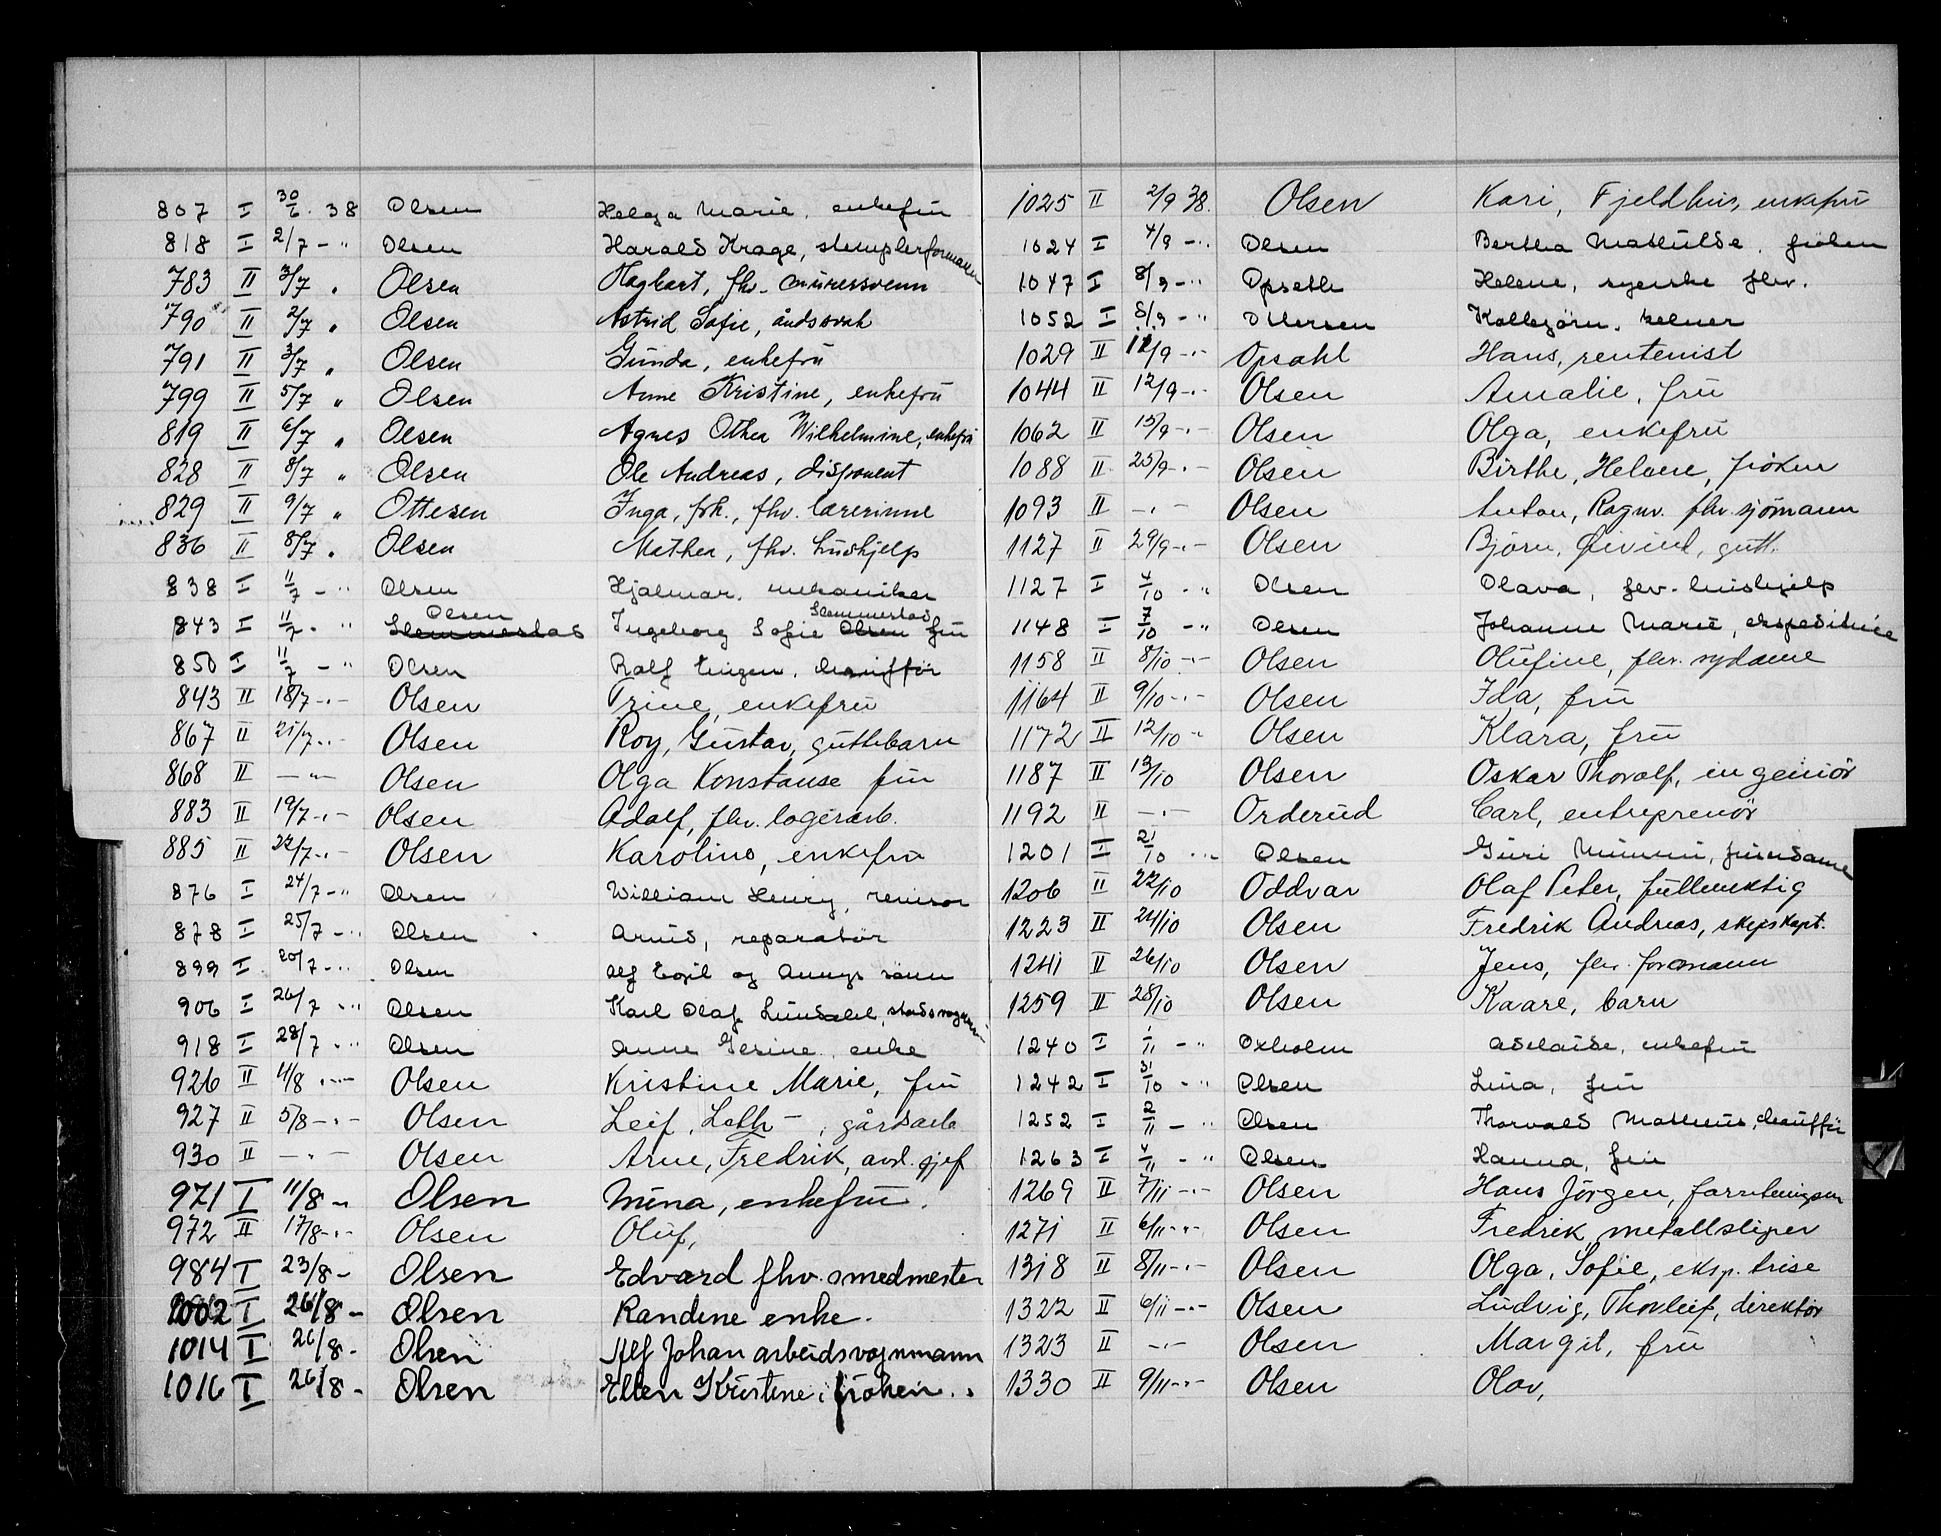 807 I 30/6. 38 Olsen Helga Marie, enkefru
818 I 2/7 - " Olsen Harald Krage, stemplerformann
783 II 3/7 " Olsen Hagbart, fhv. murersvenn
790 II 2/7 " Olsen Astrid Sofie, åndssvak
791 II 3/7 " Olsen Gunda, enkefru
799 II 5/7 " Olsen Anne Kristine, enkefru
819 II 6/7 " Olsen Agnes Othea Wilhelmine, enkefru
828 II 8/7 " Olsen Ole Andreas, disponent
829 II 9/7 " Ottesen Inga, frk., fhv. lærerinne
836 II 8/7 " Olsen Mathea, fhv. hushjelp
838 I 11/7 - " Olsen Hjalmar, mekaniker
843 I 11/7 - " Slemmestad Olsen Ingeborg Sofie Olsen Slemmestad fru
850 I 11/7 - " Olsen Ralf Eugen, chauffør
843 II 18/7 -"- Olsen Trine, enkefru
867 II 21/7 -"- Olsen Roy, Gustav, guttebarn
868 II -"- Olsen Olga Konstanse fru
883 II 19/7 -"- Olsen Adolf, fhv. lagerarb.
885 II 22/7 -"- Olsen Karoline, enkefru
876 I 24/7 - " Olsen William Henry, revisor
878 I 25/7 - " Olsen Arnid, reparatør
899 I 20/7 - " Olsen Alf Egil og Annys sønn
906 I 26/7 - " Olsen Karl Olaf Lundahl,
918 I 28/7 - " Olsen Anne Gesine, enke
926 II 4/8 -"- Olsen Kristine Marie, fru
927 II 5/8 -"- Olsen Leif, Leth -, gårdsarb
930 II -"- Olsen Arne, Fredrik, avd. sjef
971 I 11/8 -" Olsen Mina, enkefru.
972 II 17/8 -"- Olsen Oluf,
984 I 23/8 - Olsen Edvard fhv. smedmester
1002 I 26/8 - Olsen Randine enke.
1014 I 26/8 - Olsen Alf Johan arbeidsvognmann
1016 I 26/8 - Olsen Ellen Kristine, frøken.
1025 II 2/9 38. Olsen Kari, Fjeldhus, enkefru
1024 I 4/9 - " Olsen Bertha Mathilde, frøken
1047 I 8/9 - " Opseth Helene, syerske fhv.
1052 I 8/9 - " Ottersen Kolbjörn, kelner
1029 II 12/9 -"- Opsahl Hans, rentenist
1044 II 12/9 -"- Olsen Amalie, fru
1062 II 15/9 -"- Olsen Olga, enkefru
1088 II 25/9 -"- Olsen Birthe, Helene, frøken
1093 II -"- Olsen Anton, Ragnv. fhv. sjömann
1127 II 29/9 -"- Olsen Björn, Øivind, gutt.
1127 I 4/10 - " Olsen Olava, fhv. hushjelp
1148 I 7/10 - " Olsen Johanne Marie, ekspeditrice
1158 II 8/10 -"- Olsen Olufine, fhv. sydame
1164 II 9/10 -"- Olsen Ida, fru
1172 II 12/10 -" Olsen Klara, fru
1187 II 13/10 Olsen Oskar Thoralf, ingeniör
1192 II -"- Orderud Carl, entreprenör
1201 I 21/10 - " Olsen Guri Mimmi,
1206 II 22/10 Oddvar Olaf Peter, fullmektig
1223 II 24/10 Olsen Fredrik Andreas, skipskapt.
1241 II 26/10 Olsen Jens, fhv. formann
1259 II 28/10 Olsen Kaare, barn
1240 I 1/11 - " Oxholm Adelaide, enkefru
1242 I 31/10 - " Olsen Lina, fru
1252 I 2/11 - " Olsen Thorvald Matheus, chauffør
1263 I 4/11 - " Olsen Hanna, fru
1269 II 7/11 -"- Olsen Hans Jörgen, forretningsm
1271 II 6/11 -"- Olsen Fredrik, metallsliper
1318 II 8/11 -"- Olsen Olga, Sofie, eksp. trise
1322 II 6/11 -"- Olsen Ludvig, Thorleif, direktör
1323 II -"- Olsen Margit, fru
1330 II 9/11 -"- Olsen Olav,